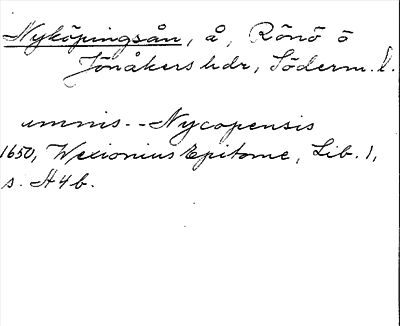 Nyköpingsån, å, Rönö o
Jönåkers hdr, Söderm. l.
amnis -- Nycopensis
1650, Wexionius Epitome, Lib. 1,
s. H4b.